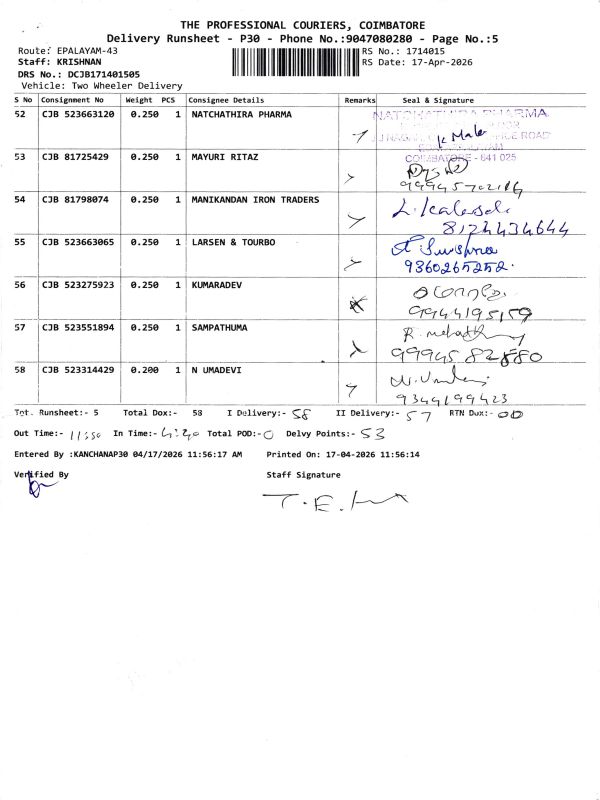 THE PROFESSIONAL COURIERS, COIMBATORE
Delivery Runsheet - P30 - Phone No.:9047080280 - Page No.:5
Route: EPALAYAM-43
RS No.: 1714015
Staff: KRISHNAN
RS Date: 17-Apr-2026
DRS No.: DCJB171401505
Vehicle: Two Wheeler Delivery
S No Consignment No Weight PCS Consignee Details Remarks Seal & Signature
52 CJB 523663120 0.250 1 NATCHATHIRA PHARMA
NATCHATHIRA PHARMA
COIMBATORE - 641 025
53 CJB 81725429 0.250 1 MAYURI RITAZ
54 CJB 81798074 0.250 1 MANIKANDAN IRON TRADERS
8124434644
55 CJB 523663065 0.250 1 LARSEN & TOURBO
9360265252.
56 CJB 523275923 0.250 1 KUMARADEV
9944195159
57 CJB 523551894 0.250 1 SAMPATHUMA
58 CJB 523314429 0.200 1 N UMADEVI
9344199423
Tot. Runsheet:- 5 Total Dox:- 58 I Delivery:- 58 II Delivery:- 57 RTN Dux:- 00
Out Time:- 11:50 In Time:- 4:40 Total POD:- 0 Delvy Points:- 53
Entered By :KANCHANAP30 04/17/2026 11:56:17 AM Printed On: 17-04-2026 11:56:14
Verified By Staff Signature